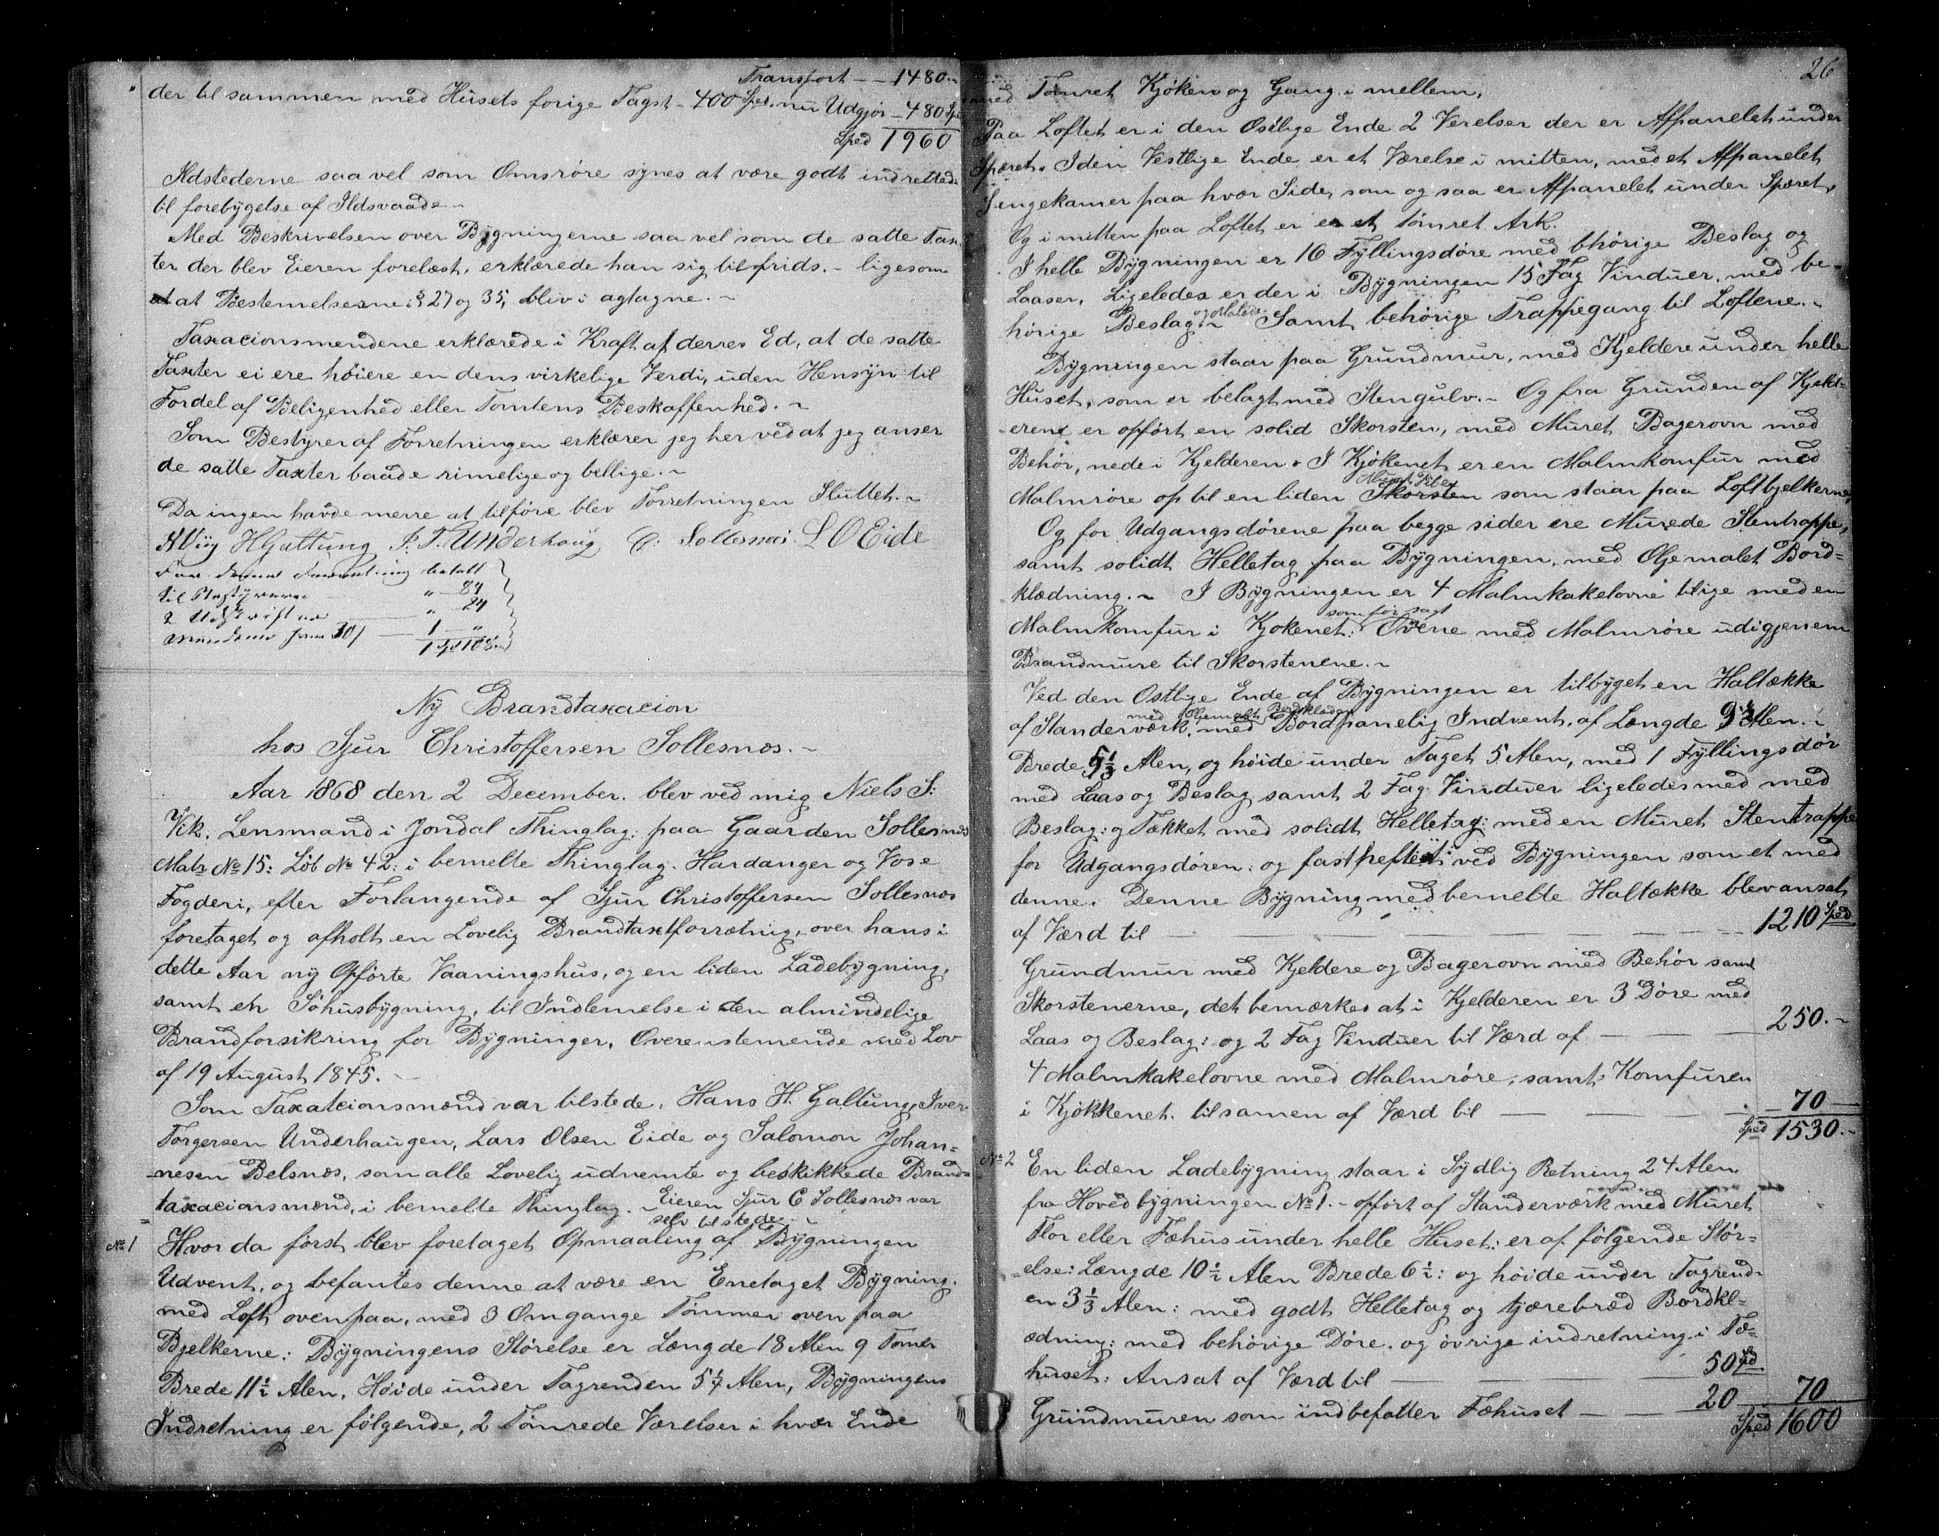 Transport — 1480.„
der til sammen med Husets forige Tagst - 400 Spd. nu Udgjør — 480 Spd
Sped 1960
Ildstederne saa vel som Omsrøre synes at være godt indrettede
til forebygelse af Ildsvaade.
Med Beskrivelsen over Bygningerne saa vel som de satte Tax-
ter der blev Eieren forelæst, erklærede han sig tilfrids. - ligesom
at Bestemelserne i § 27 og 35, blev i agtagne.
Taxacionsmendene erklærede i Kraft af derres Ed, at de satte
Taxter ei ere høiere en dens virkelige Verdi, uden Hensyn til
Fordel af Beligenhed eller Tomtens Beskaffenhed.
Som Bestyrer af Forretningen erklærer jeg her ved at jeg anser
de satte Taxter baade rimelige og bellige.
Da ingen havde merre at tilføre blev Forretningen Sluttet.
NViig HGattung I. T. Underhaug S. Sollesnæs L O Eide
betalt
til Bestyreren „ 84
2 „ 24
1 „
Ny Brandtaxacion
hos Sjur Christoffersen Sollesnæs.
Aar 1868 den 2 December. blev ved mig Niels S:
Vik. Lensmand i Jondal Thinglag: paa Gaarden Sollesnæs
Matr No 15: Løb No 42: i bemelte Thinglag. Hardanger og Vose
Fogderi, efter Forlangende af Sjur Christoffersen Sollesnæs
foretaget og afholt en Lovelig Brandtaxtforrætnig, over hans i
dette Aar ny Opførte Vaaningshus, og en liden Ladebygning,
samt en Søhusbygning, til Indlemelse i den almindelige
Brandforsikring for Bygninger, Overenstemende med Lov
af 19 August 1845.
Som Taxatcionsmænd var tilstede, Hans H. Galtung, Iver
Torgersen Underhaugen, Lars Olsen Eide og Salomon Johan-
nesen Belsnæs, som alle Lovelig udnemte og beskikkede Brand-
taxacionsmænd, i bemelte Thinglag. - Eieren Sjur C Sollesnæs var
selv tilstede.
No 1 Hvor da først blev foretaget Opmaaling af Bygningen
Udvent, og befantes denne at være en Enetaget Bygning.
med Loft ovenpaa, med 3 Omgange Tømmer oven paa
Bjelkerne: Bygningens Størelse er Længde 18 Alen 9 Tomer
Brede 11 1/2 Alen, Høide under Tagrenden 5 1/4 Alen, Bygningens
Indretning er følgende, 2 Tømrede Værelser i hvær Ende
26
med Tømret Kjøken og Gang i mellem,
Paa Loftet er i den Østlige Ende 2 Værelser der er Afpanelet under
Spæret. I den Vestlige Ende er et Værelse i mitten, med et Afpanelet
Sengekamer paa hvær Side, som og saa er Afpanelet under Spæret,
Og i mitten paa Loftet er et tømret Ark.
I helle Bygningen er 16 Fyllingsdøre med bhørige Beslag og
Laaser, Ligeledes er der i Bygningen 15 Fag Vinduer, med be-
hørige Beslag og Malede Samt behørige Trappegang til Loftene.
Bygningen staar paa Grundmur, med Kjeldere under helle
Huset, som er belagt med Stengulv. - Og fra Grunden af Kjeld-
erene er opført en solid Skorsten, med Muret Bagerovn med
Behør, nede i Kjelderen. I Kjøkenet er en Malmkomfur med
Malmrøre op til en liden Skorsten som staar paa Loftbjelkerne,
Og for Udgangsdørene paa begge sider ere Murede Stentrappe,
samt solidt Helletag paa Bygningen, med Oljemalet Bord-
klædning. - I Bygningen er 4 Malmkakelovne lige med en
Malmkomfur i Kjøkenet: som før sagt Ovene med Malmrøre udigjenem
Brandmure til Skorstenene.
Ved den Østlige Ende af Bygningen er tilbyget en Haltække
af Standerværk, med Oljemalt Bordklædn Bordpanelig Indvent, af Længde 9 1/2 Alen.
Brede 5 1/3 Alen, og høide under Taget 5 Alen, med 1 Fyllingsdør
med Laas og Beslag samt 2 Fag Vinduer ligeledes med med
Beslag: og Tækket med solidt Helletag: med en Muret Stentrappe
for Udgangsdøren: og fastheftet ved Bygningen som et med
denne. Denne Bygning med bemelte Haltække blev ansat
af Værd til — 1210 Sped
Grundmur med Kjeldere og Bagerovn med Behør samt
Skorstenerne, det bemærkes at i Kjelderen er 3 Døre med
Laas og Beslag: og 2 Fag Vinduer til Værd af — 250.„
4 Malmkakelovne med Malmrøre, samt Komfuren
i Kjøkkenet. tilsamen af Værd til — 70
Sped 1530.„
No 2 En liden Ladebygning staar i Sydlig Retning 24 Alen
fra Hovedbygningen No 1. - opført af Standerværk med Muret
Flor eller Fæhus under helle Huset: er af følgende Stør-
else: Længde 10 1/2 Alen Brede 6 1/2: og høide under Tagrend-
en 3 1/3 Alen: med godt Helletag og tjærebræd Bordkl-
ædning: med behørige Døre. og øvrige indretning i Fæ-
huset: Ansat af Værd til — 50 Spd
Grundmuren som indbefatter Fæhuset — 20 — 70
Sped 1600